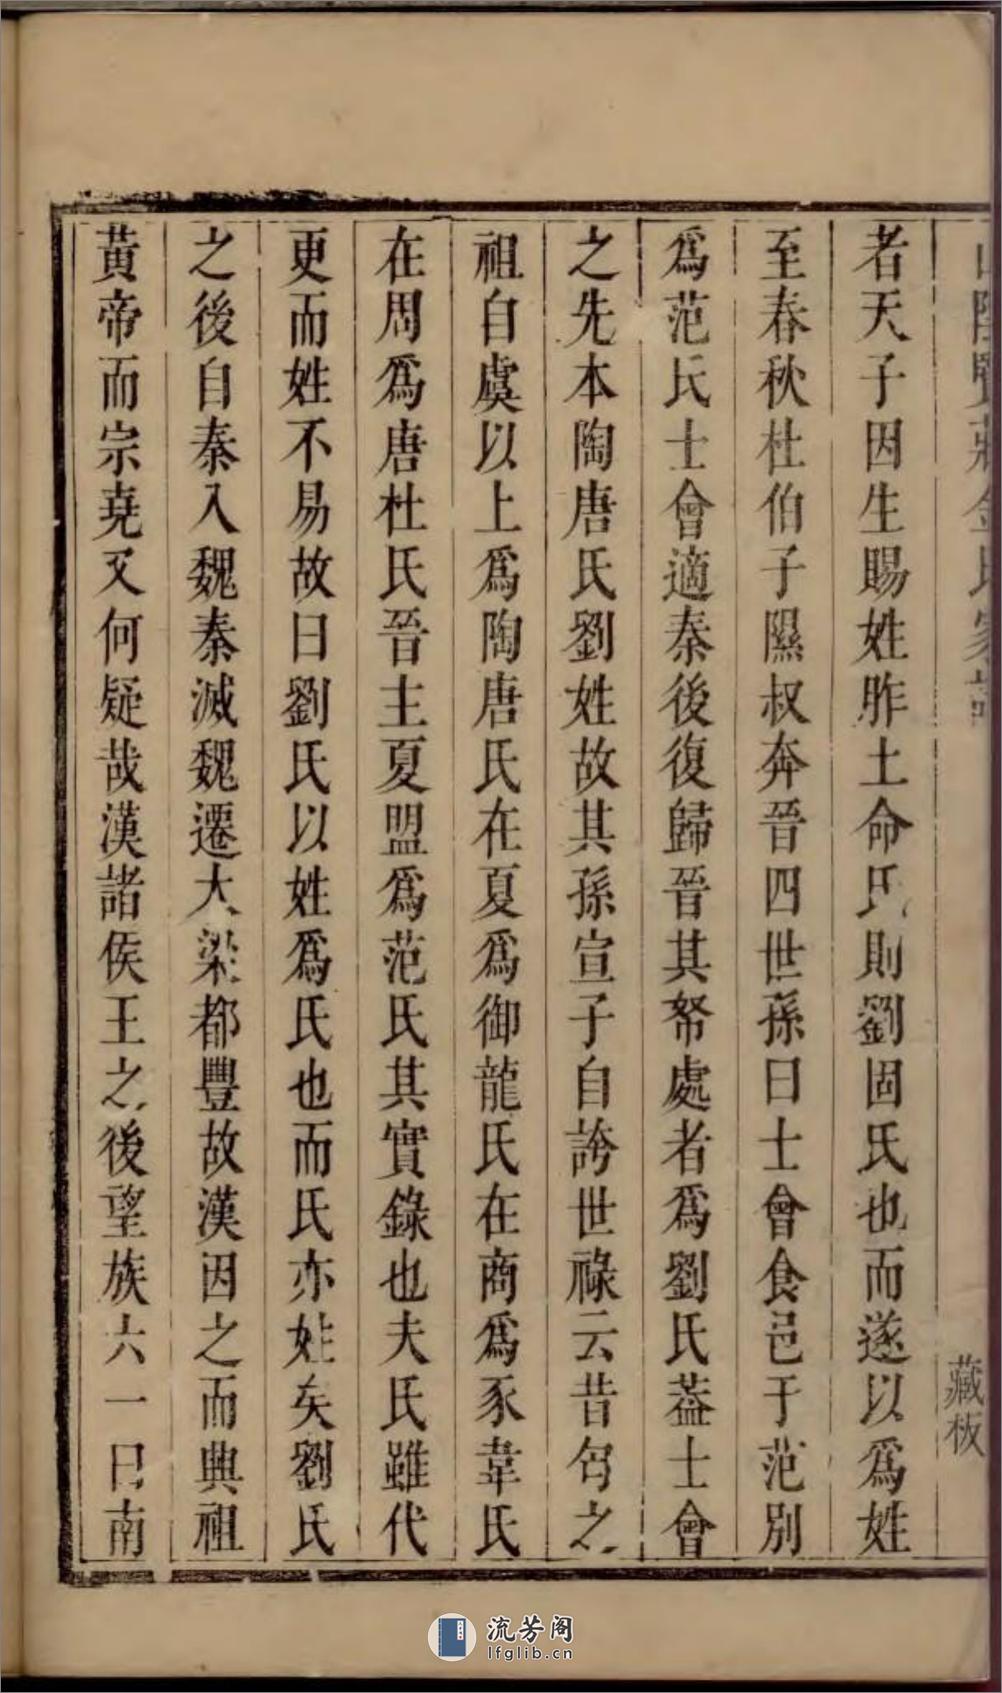 山陰賢莊金氏家譜
藏板
者天子因生賜姓胙土命氏則劉固氏也而遂以爲姓
至春秋杜伯子隰叔奔晉四世孫曰士會食邑于范別
爲范氏士會適秦後復歸晉其帑處者爲劉氏葢士會
之先本陶唐氏劉姓故其孫宣子自誇世祿云昔匄之
祖自虞以上爲陶唐氏在夏爲御龍氏在商爲豕韋氏
在周爲唐杜氏晉主夏盟爲范氏其實錄也夫氏雖代
更而姓不易故曰劉氏以姓爲氏也而氏亦姓矣劉氏
之後自秦入魏秦滅魏遷大梁都豐故漢因之而典祖
黃帝而宗堯又何疑哉漢諸侯王之後望族六一曰南
流芳阁
lfglib.cn